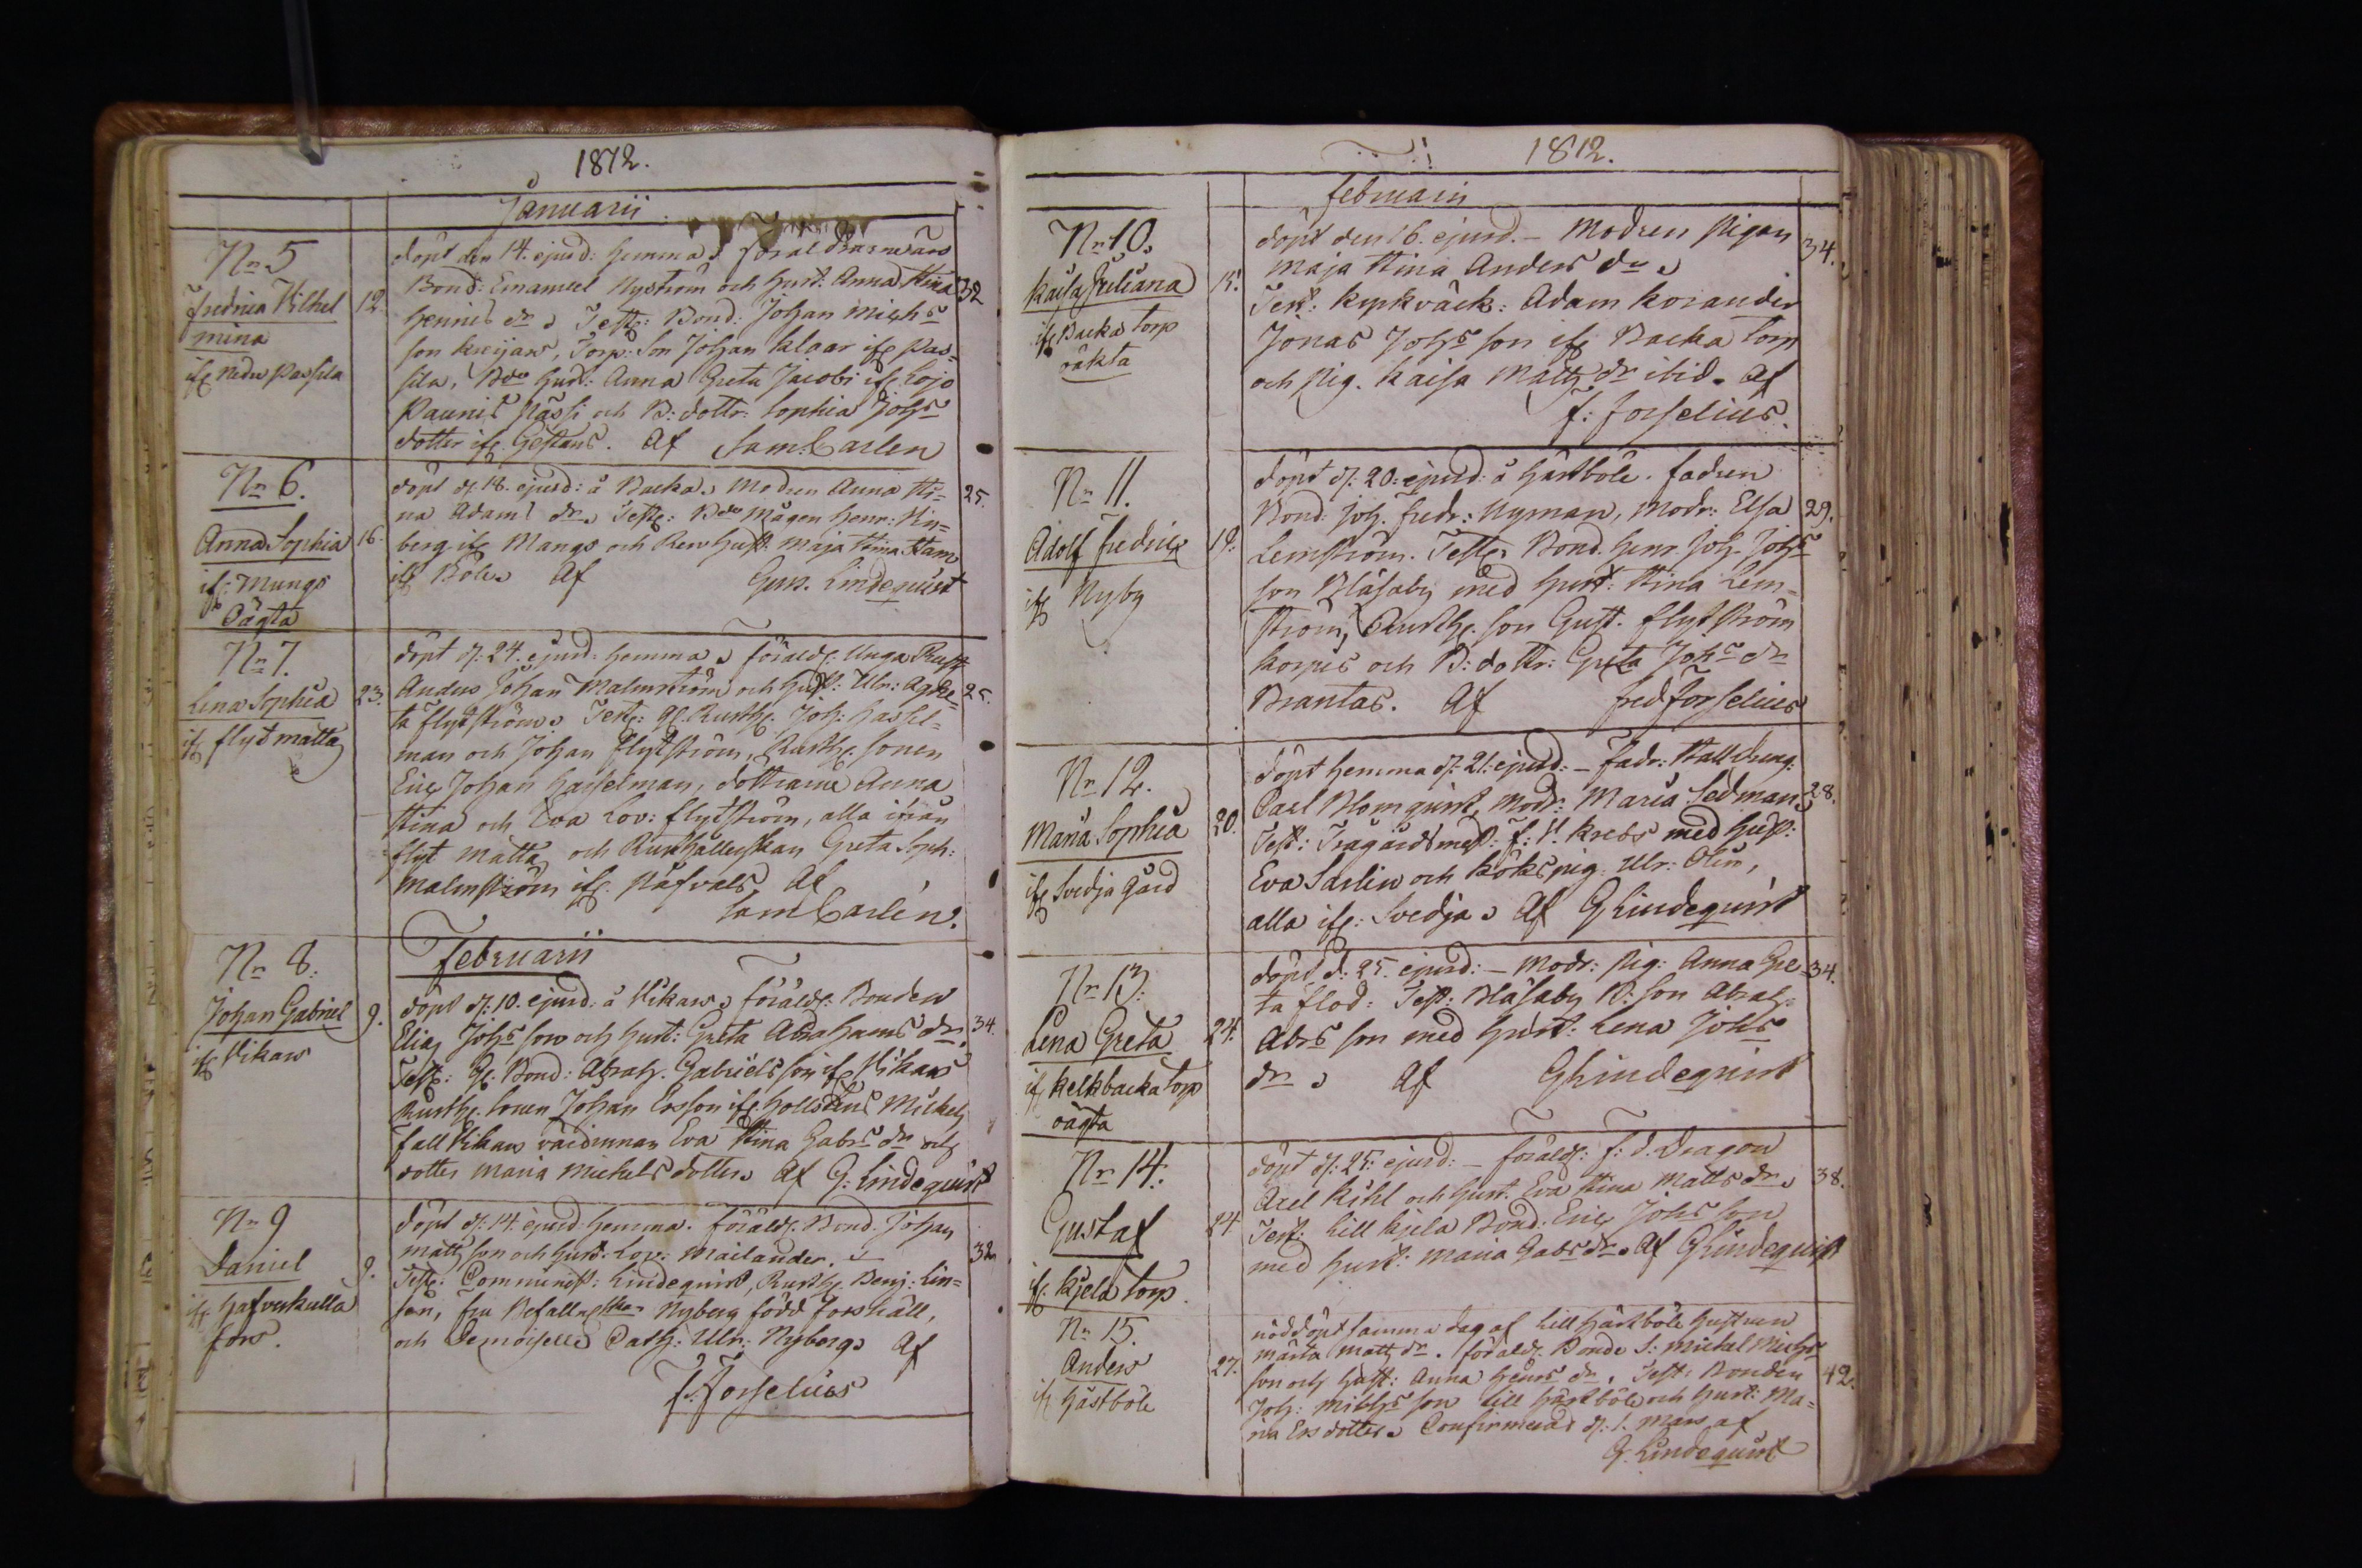 1812.
Januarii
Nr 5
Fredrica Vilhel
mina
12.
döpt den 14. ejusd: hemma.
Bond: Emanuel Nyström och hust: Anna Stina
32
Henrics dr. Test: Bond: Johan Michs
son Torp: son Johan Klaar
hust: Anna Greta Jacobs
och B: dottr: Sophia Johs
dotter if Gästans. Af Sam: Carlen
Nr 6.
Anna Sophia
if: Mungs
Oägta
16.
döpt d: 18. ejusd: å Backa. Modren Anna Sti=
25.
na Adams dr. Test: Mågen Henr: Lin=
berg if Mangs och hust: Maja Stina Stam
if Böle. Af Gust. Lindequist
Nr 7.
Lena Sophia
if Flyt matts
23.
döpt d: 24. ejusd: hemma. Föräldr: Unga Rusth
Anders Johan Malmström och hust: Ulr: Agne=
25.
ta Flytström. Test: Gl. Rusth: Joh: Hassel=
man och Johan Flytström, Rusth: sonen
Eric Johan Hasselman, döttrarne Anna
Stina och Eva Lov: Flytström, alla ifrån
Flyt matts och Rusthållerskan Greta Soph:
Malmström if Påfvals. Af
Sam Carlén.
Februarii
Nr 8.
Johan Gabriel
if Vikars
9.
döpt d: 10. ejusd: å Vikars. Föräldr: Bonden
Elias Johs son och hust: Greta Abrahams dr.
34.
Test: Gl. Bond: Abrah. Gabriels son if Vikars
Rusth: sonen Johan Ersson if Hollstens Michels
Fall Vikars värdinnan Eva Stina Gabrs dr och
dotter Maria Michels dotter. Af G: Lindequist
Nr 9
Daniel
if Hafverkulla
fors.
9.
döpt d: 14. ejusd: hemma. Föräldr. Bond. Johan
Matts son och hust: Lov: Mailander.
32
Test: Comminist: Lindequist, Rusth: Benj: Lin=
son, fru Befallgskan Nyberg född Forshäll,
och Demoiselle Cath: Ulr: Nyberg. Af
F. Forselius
1812.
Februarii
Nr 10.
Kaisa Juliana
if Backa torp
oäkta
15.
döpt den 16. ejusd. – Modren Pigan
34.
Maja Stina Anders dr.
Test: Kyrkväck: Adam Korander
Jonas Johs son if Backa torp
och Pig. Kaisa Matts dr ibid. Af
F: Forselius.
Nr 11.
Adolf Fredric
if Nyby
19.
döpt d: 20: ejusd: å Hästböle. Fadren
Bond: Joh. Fredr: Nyman, Modr: Elsa
29.
Lemström. Test: Bond. Henr. Joh. Johs
son Blåsaby med hust: Stina Lem=
ström, Rusth: son Gust. Flytström
Korpis och B: dottr: Greta Johs dr
Brantas. Af Fred Forselius
Nr 12.
Maria Sophia
if Svedja gård
20.
döpt hemma d: 21: ejusd: – Fadr: Stalldreng:
Carl Blomquist, Modr: Maria Sedman
28.
Test: Trägårdsmäst: F: H. Krebs med hust:
Eva Sarlin och Kökspig: Ulr: Olin,
alla if: Svedja. Af G Lindequist
Nr 13:
Lena Greta
if Kelkbacka torp
oägta
24.
döpt d: 25. ejusd: – Modr: Pig: Anna Gre=
34.
ta Flod: Test: Blåsaby B: son Abrah:
Abrs son med hust: Lena Johs
dr. Af G Lindequist
Nr 14.
Gustaf
if Kjela torp.
24
döpt d: 25: ejusd: – Föräldr: F: d. Dragon
Axel Kihl och hust. Eva Stina Matts dr.
38.
Test: Lill Kjela Bond: Eric Johs son
med hust: Maria Gabrs dr. Af G Lindequist
Nr 15.
Anders
if Hästböle
27.
nöddöpt samma dag af Lill Hästböle hustrun
Märta Matts dr. Föräldr. Bonde S: Michel Michs
son och hust: Anna Henrs dr. Test: Bonden
42.
Joh: Michs son Lill Hästböle och hust: Ma=
ria Ers dotter. Confirmerad d: 1. Mars af
G. Lindequist